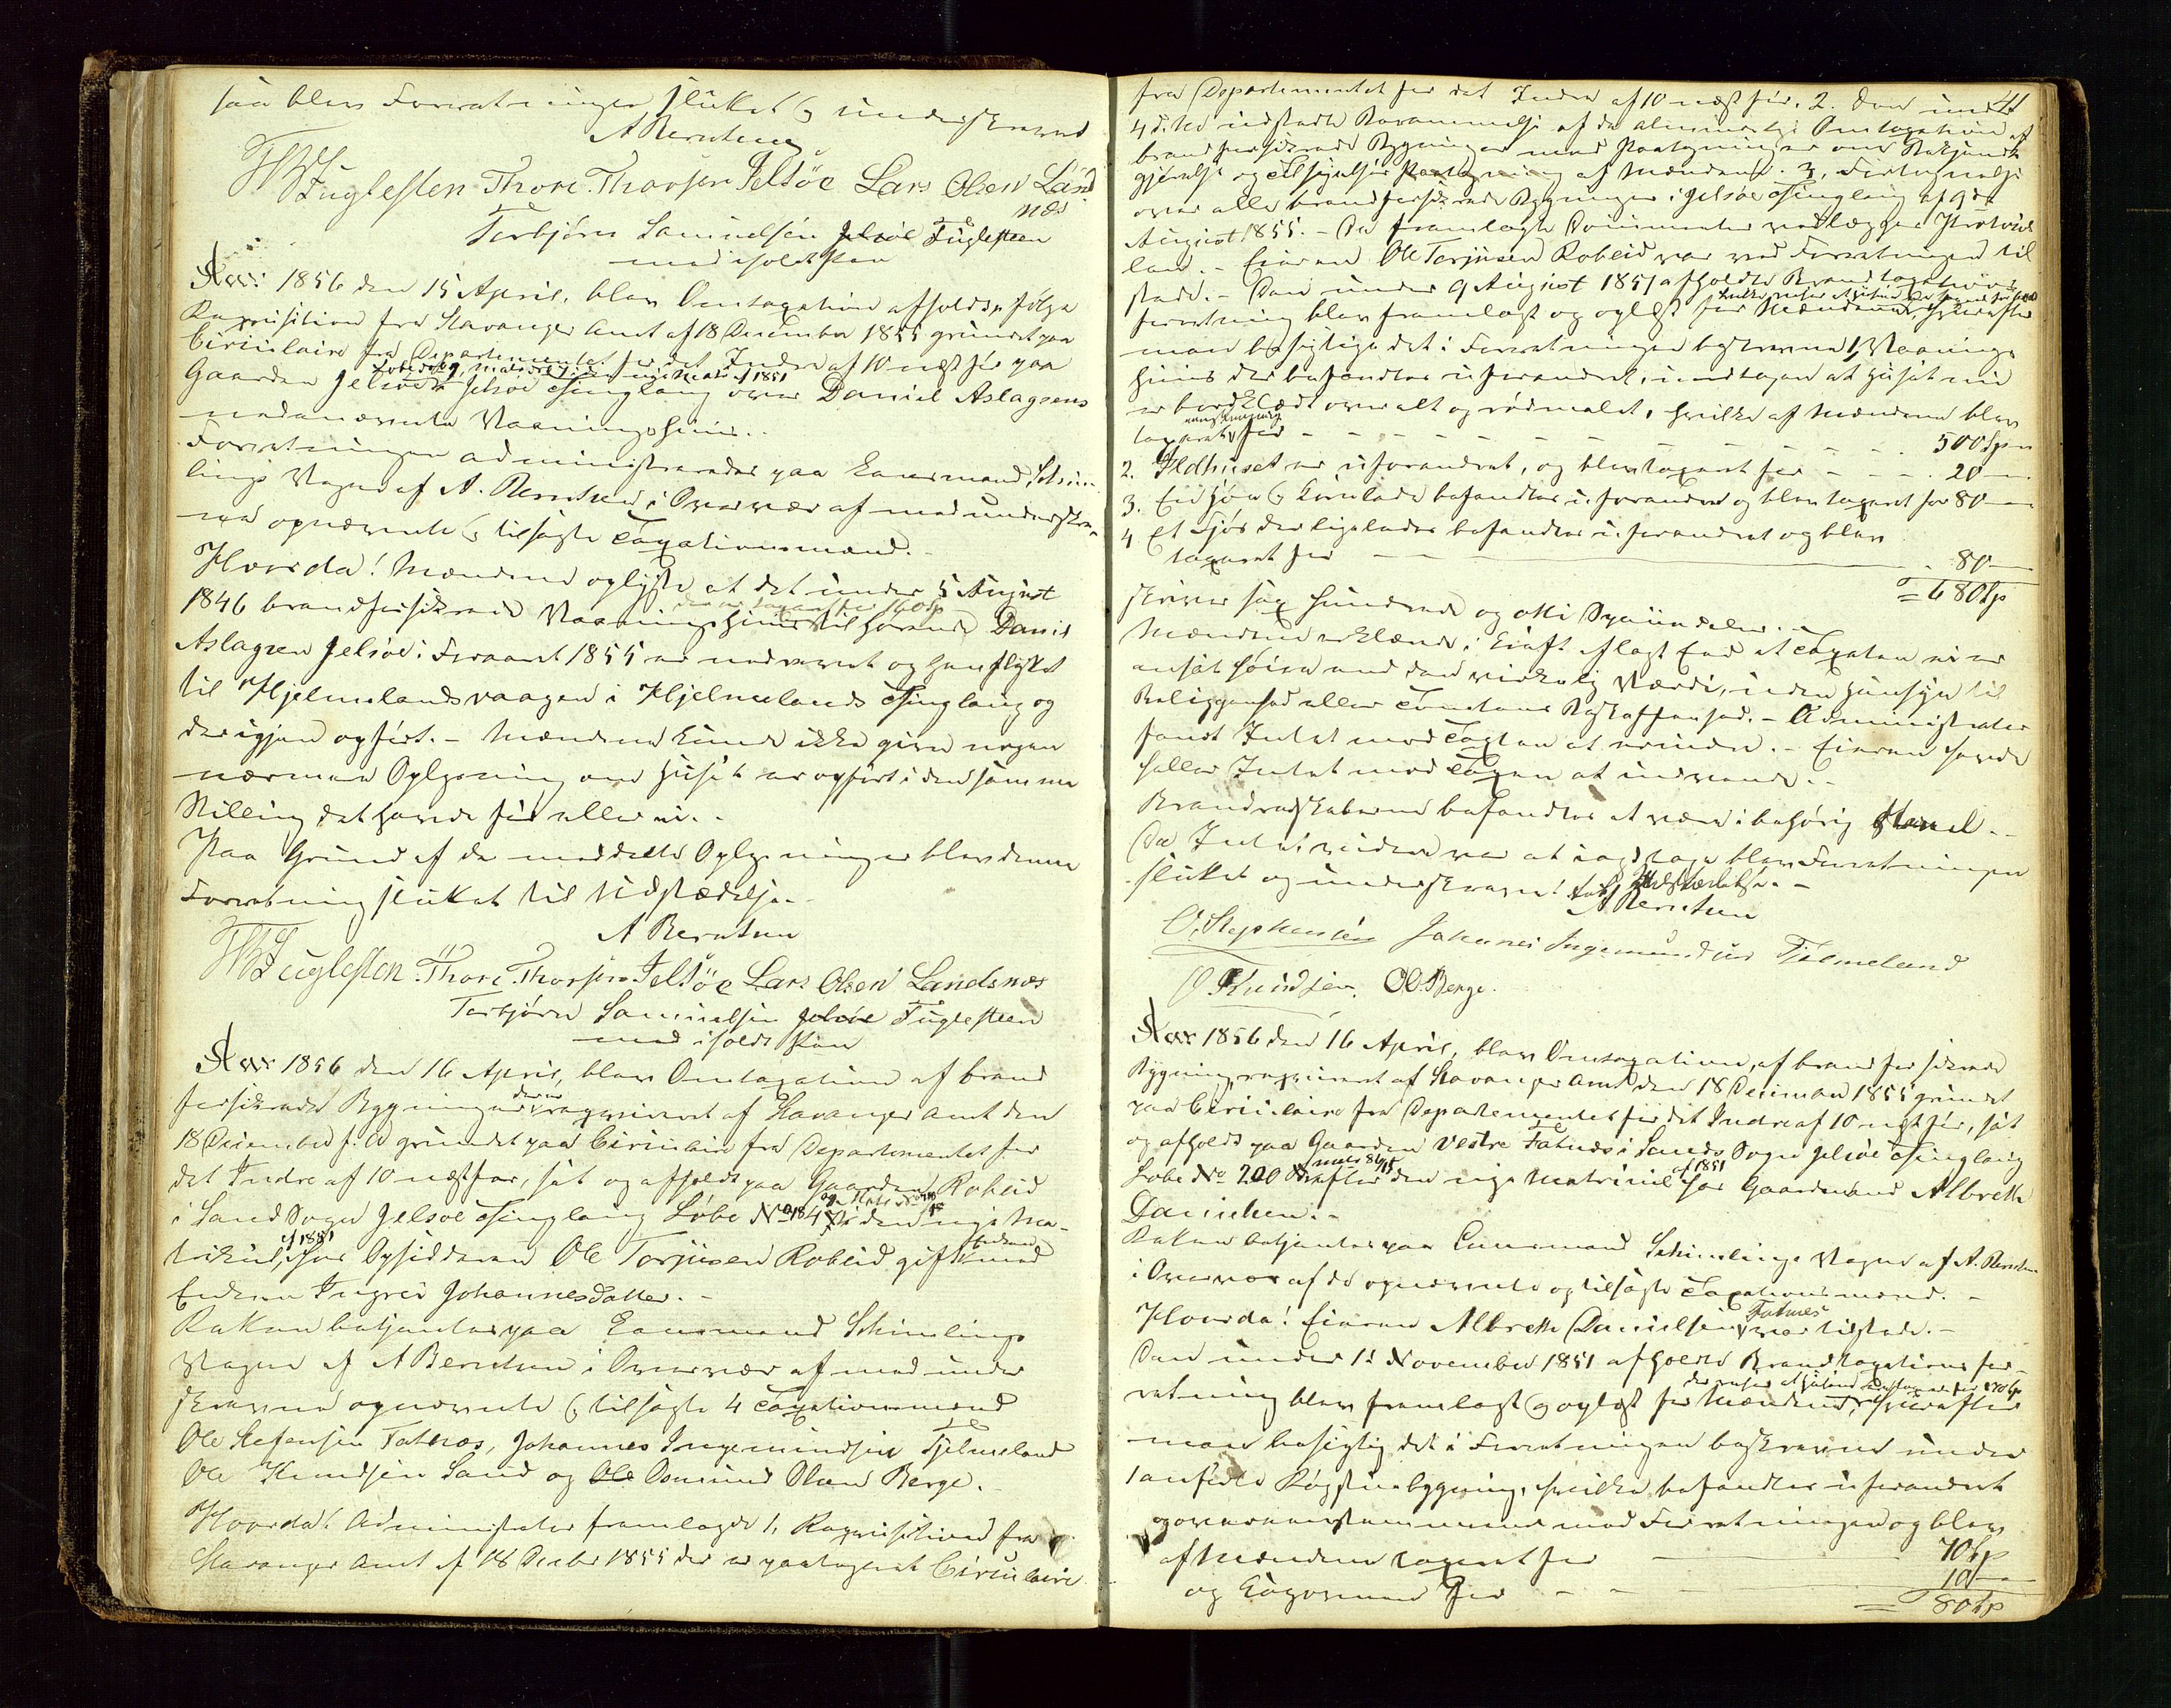 saa blev Forretningen sluttet og underskreven
A Berntsen
WS Fuglesten Thore Thorsen Jelsöe Lars Olsen Land
næs
Torbjörn Samuelsen Jelsöe Fuglesteen
med iholdt Pen
Aar 1856 den 15 April, blev Omtaxation afholdt, ifølge
Requisition fra Stavanger Amt af 18 December 1855 grundet paa
Circulaire fra Departementet for det Indre af 10 næst før paa
Gaarden Jelsöe i Jelsöe Thinglaug over Daniel Aslagsens
nedennævnte Vaaningshuus.
Forretningen administreredes paa Lensmand Schiø-
lings Vegne af A. Berntsen i Overvær af medunderskre-
vne opnævnte og tilsagte Taxationsmænd.
Hvorda! Mændene oplyste at det under 5 August
1846 brandforsikrede Vaaningshuus tilhørende Daniel
der er taxeret for 160 Sp
Aslagsen Jelsöe i Foraaret 1855 er nedrevet og henflyttet
til Hjelmelandsvaagen i Hjelmelands Thinglaug og
der igjen opført. - Mændene kunde ikke give nogen
nærmere Oplysning om Huset er opført i den samme
Stilling det havde før eller ei.
Paa Grund af de meddelte Oplysninger blev denne
Forretning sluttet til Udstædelse.
A Berntsen
WS Fuglesten Thore Thorsen Jelsöe Lars Olsen Landsnæs
Torbjörn Samuelsen Jelsöe Fuglesteen
med iholdt Pen
Aar 1856 den 16 April, blev Omtaxation af brand
forsikrede Bygninger der er requireret af Stavanger Amt den
18 December f. A grundet paa Circulaire fra Departementet for
det Indre af 10 næstfør, sat og afholdt paa Gaarden Robeid
i Sand Sogn Jelsöe Thinglaug Løbe No 184 i den nye Ma-
trikul af 1851, hos Opsidderen Ole Torjusen Robeid gift med
Enken Ingrei Johannesdatter.
Retten betjentes paa Lensmand Schiølings
Vegne af A Berntsen i Overvær af med under
skrevne opnævnte og tilsagte 4 Taxationsmænd
Ole Stefensen Fatnæs, Johannes Ingemundsen Tjelmeland
Ole Knudsen Sand og Ole Osmund Olsen Berge.
Hvorda! Administrator fremlagde 1, Requisitionen fra
Stavanger Amt af 18 Decbr 1855 der er paategnet Circulaire
41
fra Departementet for det Indre af 10 næst før. 2. Den under
4 d. M udstædte Berammelse af de almindelige Omtaxation af
brandforsikrede Bygninger med Paategninger om Bekjendt
gjørelse og Tilsigelses Paategning af Mændene. 3, Fortegnelse
over alle brandforsikrede Bygninger i Jelsöe Thinglaug af 9de
August 1855. - De fremlagte Documenter vedlægges Protocol
len. - Eieren Ole Torjusen Robeid var ved Forretningen til
stede. - Den under 9 August 1851 afholdte Brandtaxations
forretning blev fremlagt og oplæst for Mændene, hvorefter
man besigtigede det i Forretningen beskrevne 1, Vaanings
huus der befandtes uforandret, undtagen at Huset nu
er bordklædt overalt og rødmalet, hvilket af Mændene blev
taxeret for - - - - - 500 Sp
2. Ildhuset er uforandret, og blev taxeret for - - 20 -
3. En Høe og Kornlade befandtes uforandret og blev taxeret for 80 -
4 Et Fjøs der ligeledes befandtes uforandret og blev
taxeret for - - 80 -
= 680 Sp
skriver sex hundrede og otti Speciedaler.
Mændene erklærede i Kraft aflagt Eed at Taxaten ei er
ansat høiere end den virkelig Værdi, uden Hensyn til
Beliggenhed eller Tomtens Beskaffenhed. - Administrator
fandt Intet mod Taxten at erindre. - Eieren havde
heller Intet mod Taxten at indvende.
Brandredskaberne befandtes at være i behørig Stand.
Da Intet videre var at iagttage blev Forretningen
sluttet og underskreven til Udstædelse. -
A Berntsen
O. Stephensen Johanes Ingemundsen Tjelmeland
O Knudsen, O O. Berge.
Aar 1856 den 16 April, blev Omtaxation, af brandforsikrede
Bygning requireret af Stavanger Amt den 18 December 1855 grundet
paa Circulaire fra Departementet for det Indre af 10 næst før, sat
og afholdt paa Gaarden Vestre Fatnæs i Sands Sogn Jelsöe Thinglaug
Løbe No 200 efter den nye Matricul af 1851 hos Gaardmand Albreth
Danielsen.
Retten betjentes paa Lensmand Schiølings Vegne af A. Berntsen
i Overvær af de opnævnte og tilsagte Taxationsmænd. -
Hvorda! Eieren Albreth Danielsen Fatnes var tilstede. -
Den under 1ste November 1851 afholdte Brandtaxationsfor-
retning blev fremlagt og oplæst for Mændene, hvorefter
man besigtig det i Forretningen beskrevne under
1 anførte Røgstuebygning, hvilken befandtes uforandret
og overensstemmende med Forretningen og blev
af Mændene taxeret for - 70 Sp
og Kakkelovn for - - 10 -
= 80 Sp